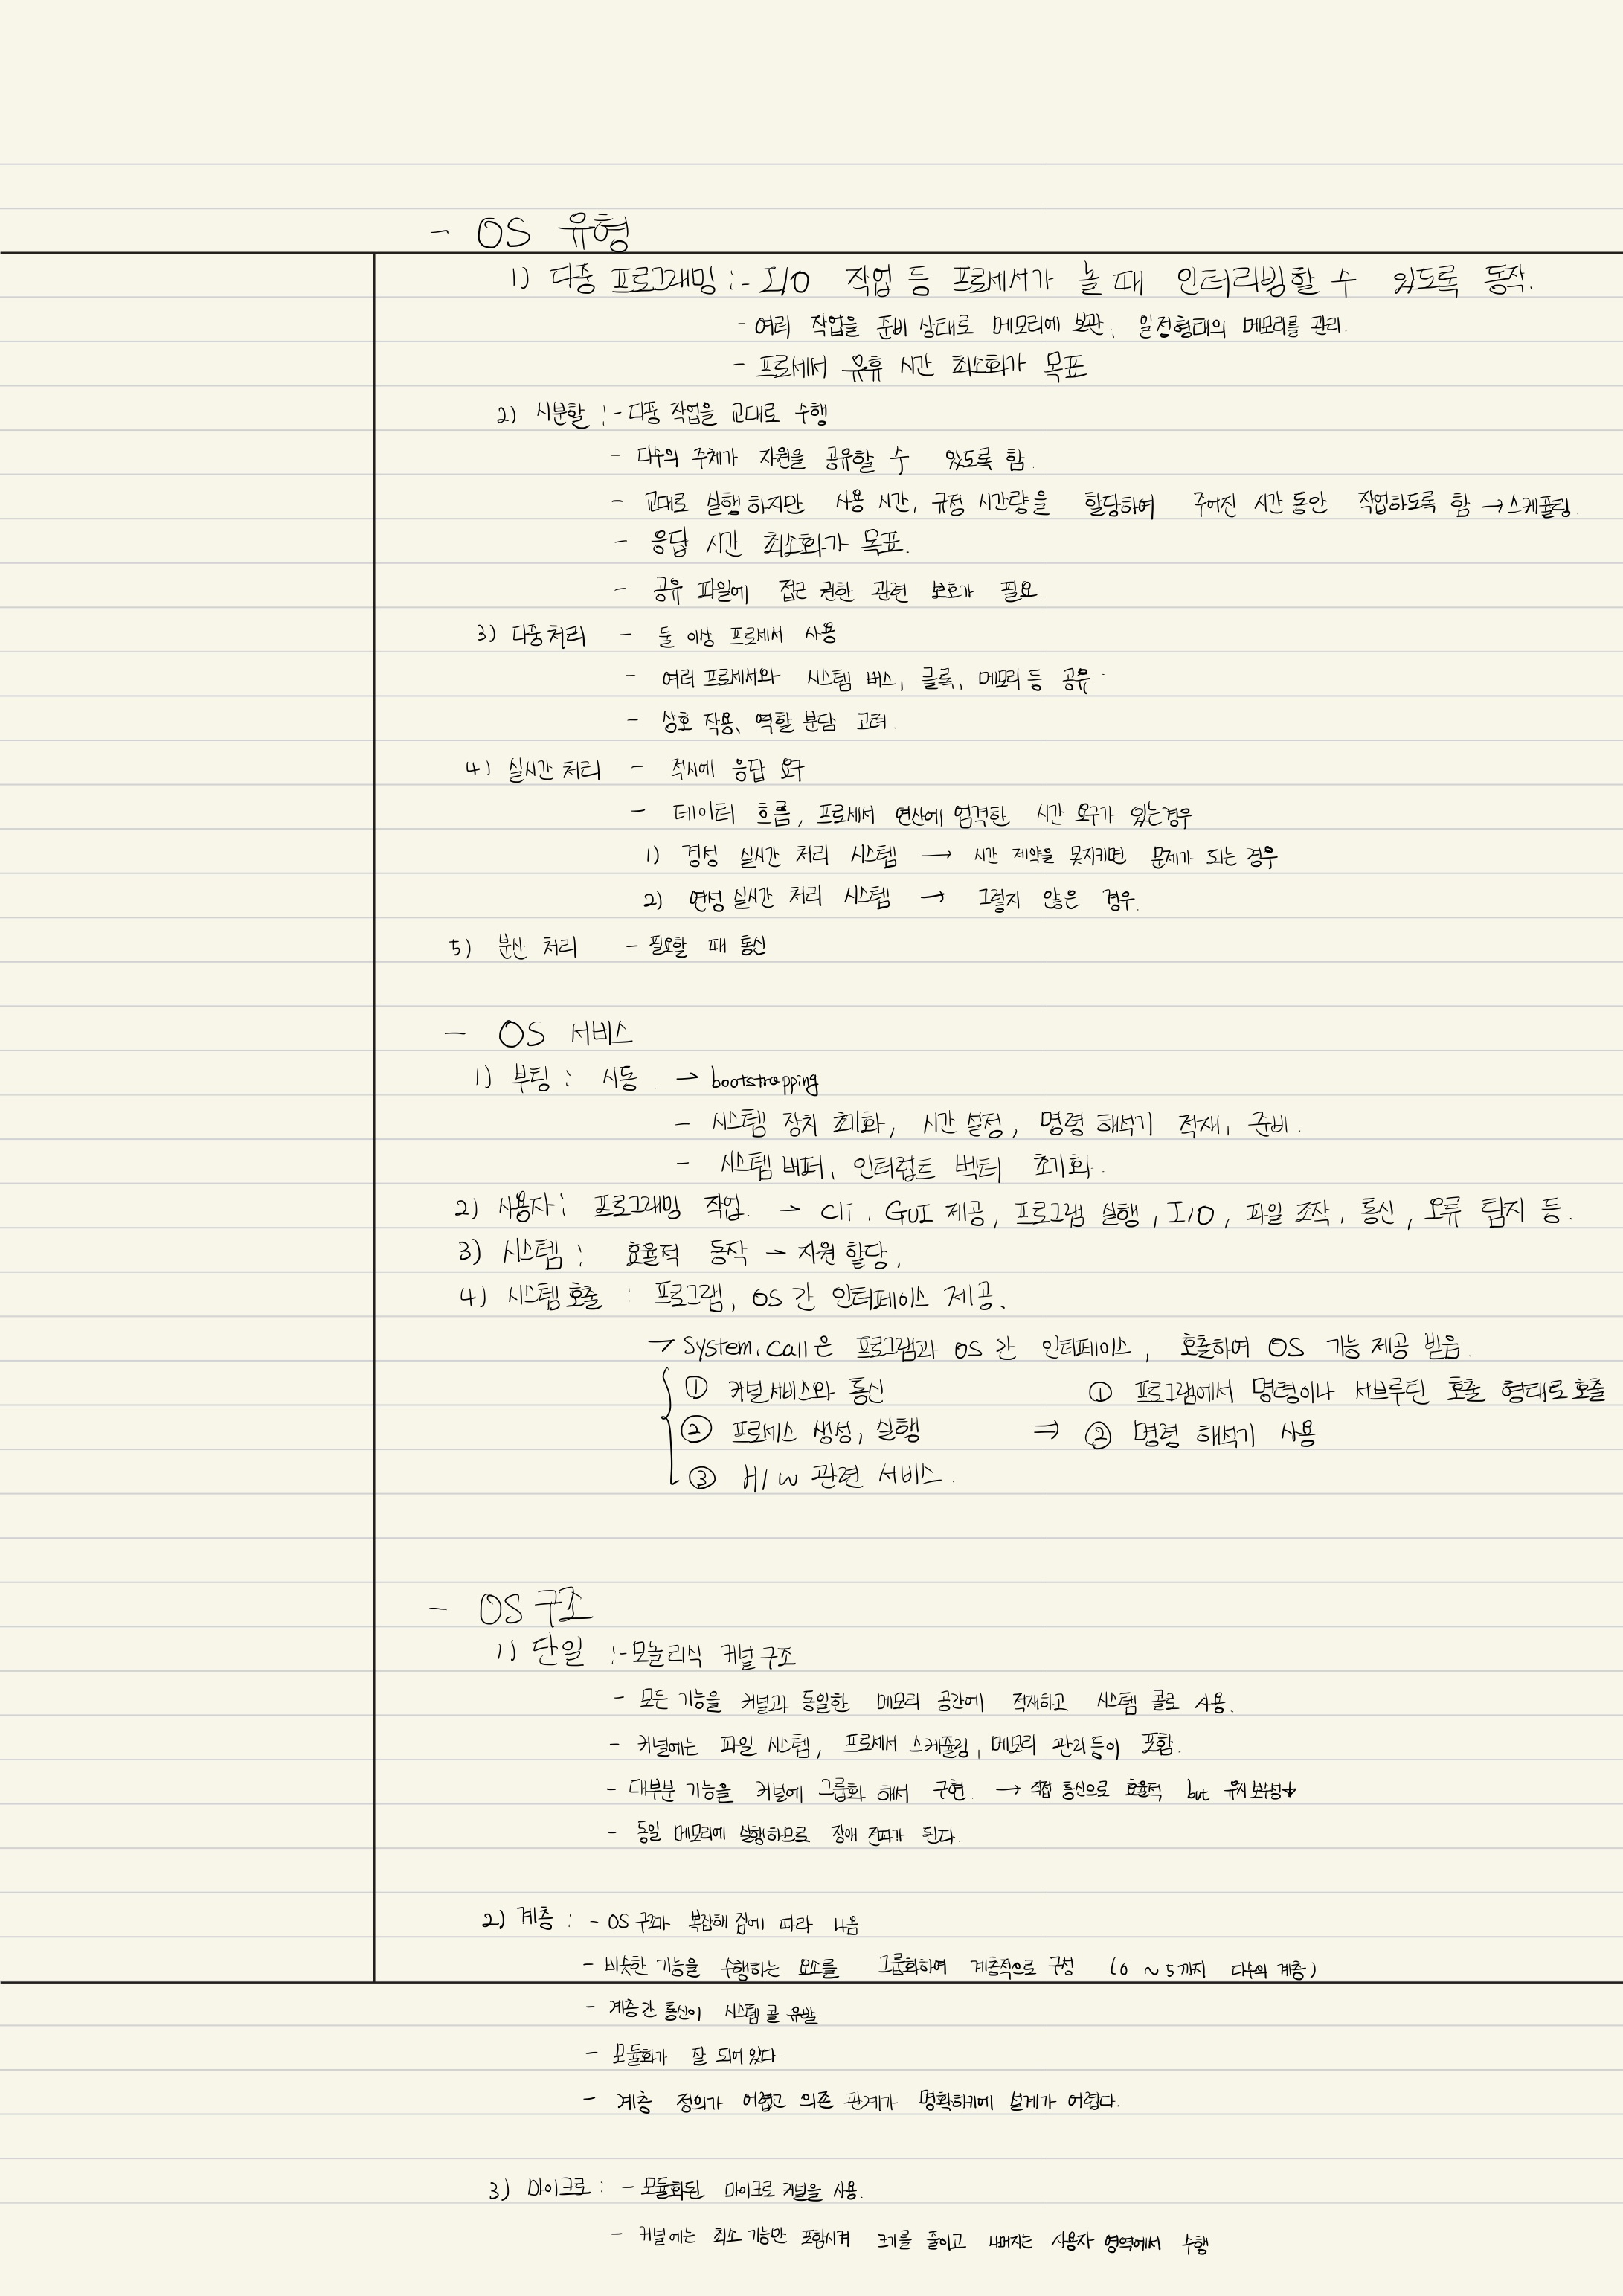 - OS 유형
1) 다중 프로그래밍 :- I/O 작업 등 프로세서가 놀 때 인터리빙할 수 있도록 동작.
- 여러 작업을 준비 상태로 메모리에 보관, 일정형태의 메모리를 관리.
- 프로세서 유휴 시간 최소화가 목표
2) 시분할 :- 다중 작업을 교대로 수행
- 다수의 주체가 자원을 공유할 수 있도록 함.
- 교대로 실행하지만 사용 시간, 규정 시간량을 할당하여 주어진 시간 동안 작업하도록 함 → 스케쥴링.
- 응답 시간 최소화가 목표.
- 공유 파일에 접근 권한 관련 보호가 필요.
3) 다중처리 - 둘 이상 프로세서 사용
- 여러 프로세서와 시스템 버스, 클록, 메모리 등 공유.
- 상호 작용, 역할 분담 고려.
4) 실시간 처리 - 적시에 응답 요구
- 데이터 흐름, 프로세서 연산에 엄격한 시간 요구가 있는경우
1) 경성 실시간 처리 시스템 → 시간 제약을 못지키면 문제가 되는 경우
2) 연성 실시간 처리 시스템 → 그렇지 않은 경우.
5) 분산 처리 - 필요할 때 통신
- OS 서비스
1) 부팅 : 시동. → bootstrapping
- 시스템 장치 초기화, 시간 설정, 명령 해석기 적재, 준비.
- 시스템 버퍼, 인터럽트 벡터 초기화.
2) 사용자 : 프로그래밍 작업. → cli, GUI 제공, 프로그램 실행, I/O, 파일 조작, 통신, 오류 탐지 등.
3) 시스템 : 효율적 동작 → 자원 할당,
4) 시스템 호출 : 프로그램, OS 간 인터페이스 제공.
→ System.call은 프로그램과 OS 간 인터페이스, 호출하여 OS 기능 제공 받음.
① 커널서비스와 통신 ① 프로그램에서 명령이나 서브루틴 호출 형태로 호출
② 프로세스 생성, 실행 ⇒ ② 명령 해석기 사용
③ H/W 관련 서비스.
- OS 구조
1) 단일 :- 모놀리식 커널 구조
- 모든 기능을 커널과 동일한 메모리 공간에 적재하고 시스템 콜로 사용.
- 커널에는 파일 시스템, 프로세서 스케쥴링, 메모리 관리등이 포함.
- 대부분 기능을 커널에 그룹화 해서 구현. → 직접 통신으로 효율적 but 유지 보수성↓
- 동일 메모리에 실행하므로 장애 전파가 된다.
2) 계층 : - OS 구조가 복잡해 짐에 따라 나옴
- 비슷한 기능을 수행하는 요소를 그룹화하여 계층적으로 구성. (0 ~ 5까지 다수의 계층)
- 계층간 통신이 시스템 콜 유발
- 모듈화가 잘 되어 있다
- 계층 정의가 어렵고 의존 관계가 명확하기에 설계가 어렵다.
3) 마이크로 : - 모듈화된 마이크로 커널을 사용.
- 커널에는 최소 기능만 포함시켜 크기를 줄이고 나머지는 사용자 영역에서 수행